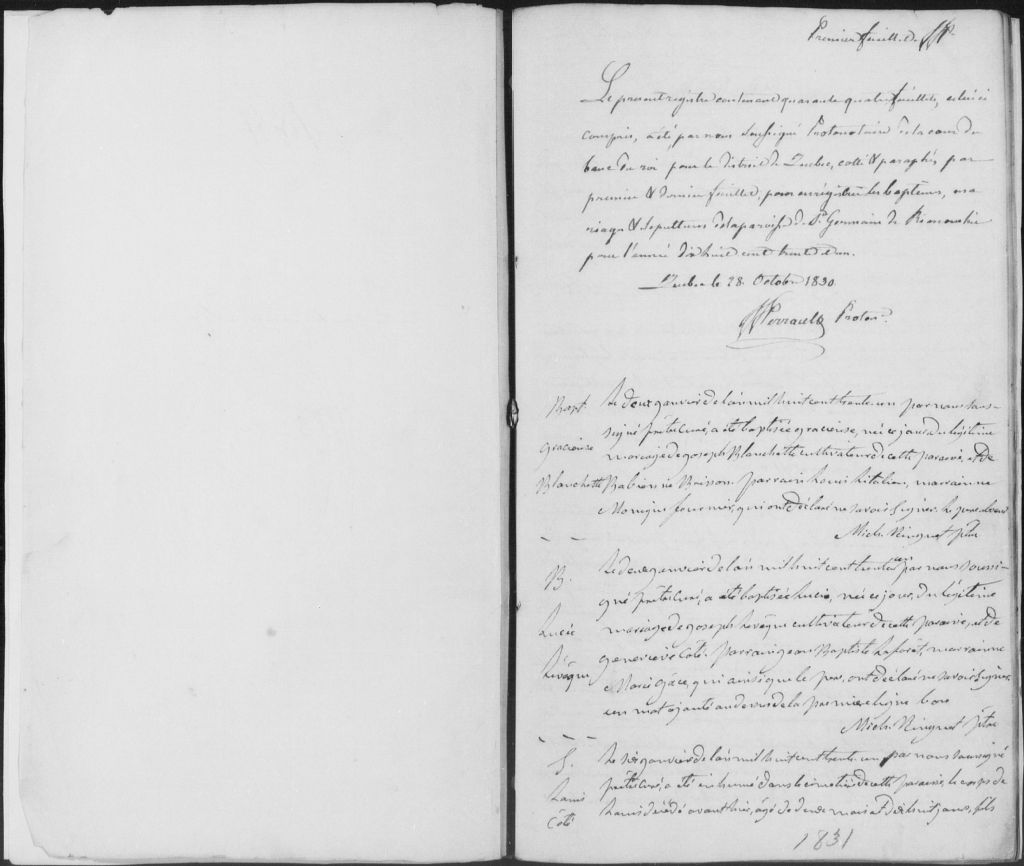 Premier feuillet. JFP.
Le present registre contenant quarante quatre feuillets, celui ci
compris, a été, par nous Soussigné Protonotaire de la cour du
banc du roi pour le district de Quebec, cotté & paraphés par
premier & dernier feuillet, pour enrégistrer les baptêmes, ma
riages & Sepultures de la paroisse de St. Germain de Rimouskie
pour l'année dixhuit cent trente et un.
Quebec le 28. Octobre 1830.
JFPerrault Proton.
Bapt. Le deux janvier de l'an mil huit cent trente-un par nous sous-
signé prêtre curé, a été baptisée gracieuse, née ce jour du légitime
gracieuse mariage de joseph Blanchette cultivateur de cette paroisse, et de
Blanchette Babienne Buisson. Parrain Louis Litalien, marrainne
Monique fournier, qui ont déclaré ne savoir signer. Le pere absent
Mich. Ringuet ptre
B. Le deux janvier de l'an mil huit cent trente un par nous soussi-
gné prêtre curé, a été baptisée Lucie, née ce jour, du légitime
Lucie mariage de joseph Levêque cultivateur de cette paroisse, et de
Levêque genevieve Côté. Parrain jean Baptiste Laforêt, marrainne
Marie qui ainsi que le pere, ont déclaré ne savoir signer,
un mot ajouté au dessus de la premiere ligne bon
Mich. Ringuet ptre
S. Le six janvier de l'an mil huit cent trente-un par nous soussigné
prêtre curé, a été inhumé dans le cimetière de cette paroisse, le corps de
Louis Louis décédé avant hier, âgé de deux mois et dixhuit jours, fils
Côté
1831